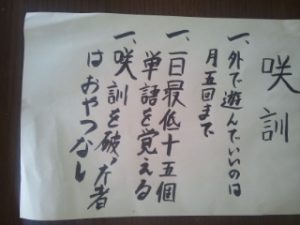 咲訓
一、外で遊んでいいのは
月五回まで
一、一日最低十五個
単語を覚える
一、咲訓を破った者
はおやつなし